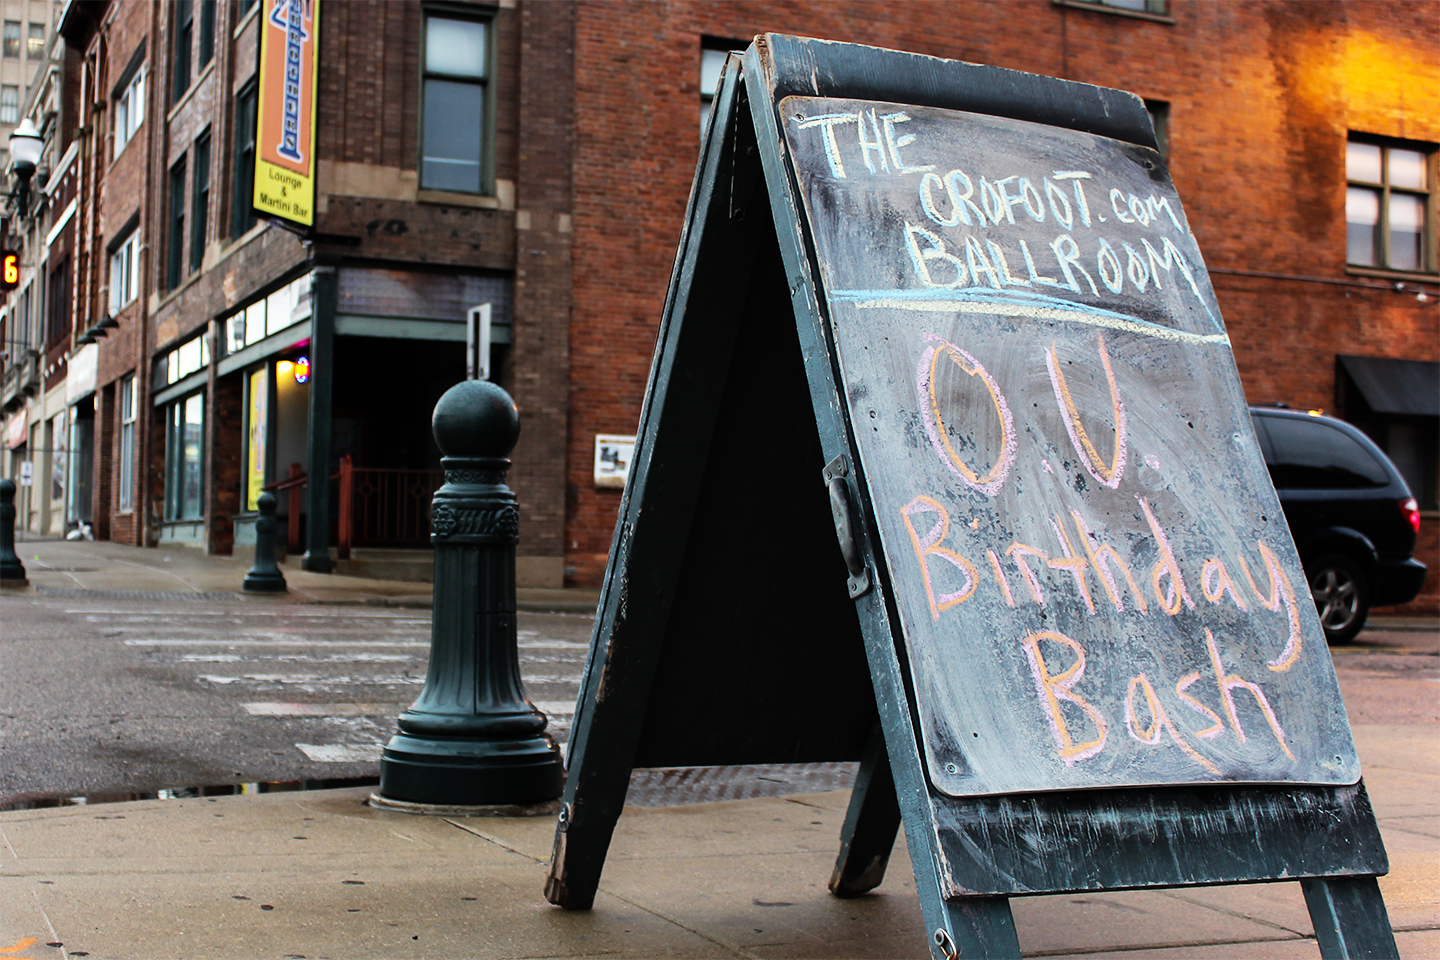 THE
CROFOOT.COM
BALLROOM
O.U.
Birthday
Bash
Lounge
&
Martini Bar
6